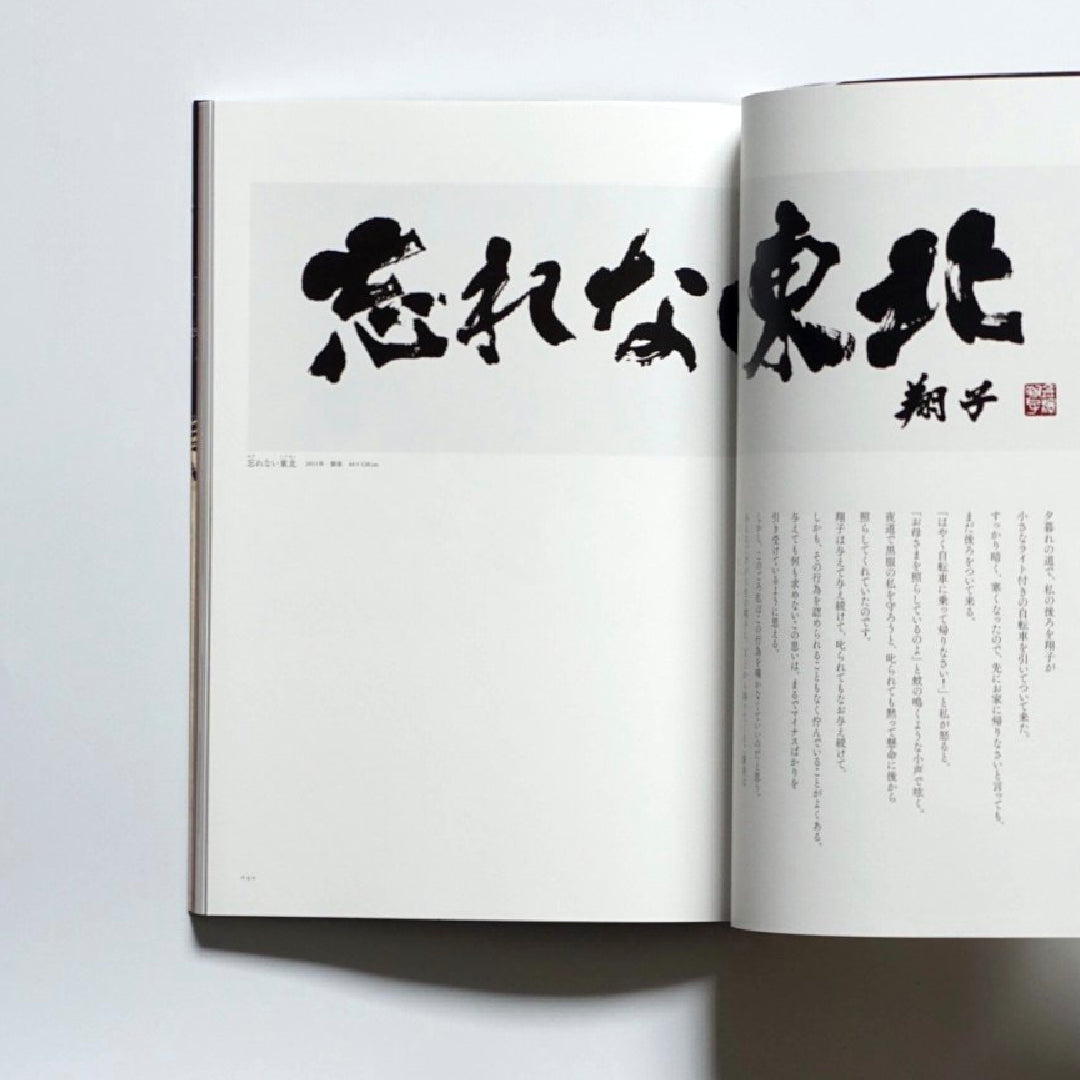 忘れな東北
翔子
忘れない東北
夕暮れの道で、私の後ろを翔子が
小さなライト付きの自転車を引いてついて来た。
すっかり暗く、寒くなったので、先にお家に帰りなさいと言っても、
まだ後ろをついて来る。
『はやく自転車に乗って帰りなさい！』と私が怒ると、
『お母さまを照らしているのよ』と蚊の鳴くような小声で呟く。
夜道で黒服の私を守ろうと、叱られても黙って懸命に後から
照らしてくれていたのです。
翔子は与えて与え続けて、叱られてもなお与え続けて、
しかも、その行為を認められることもなく佇んでいることがよくある。
与えても何も求めないこの思いは、まるでマイナスばかりを
引き受けているように思える。